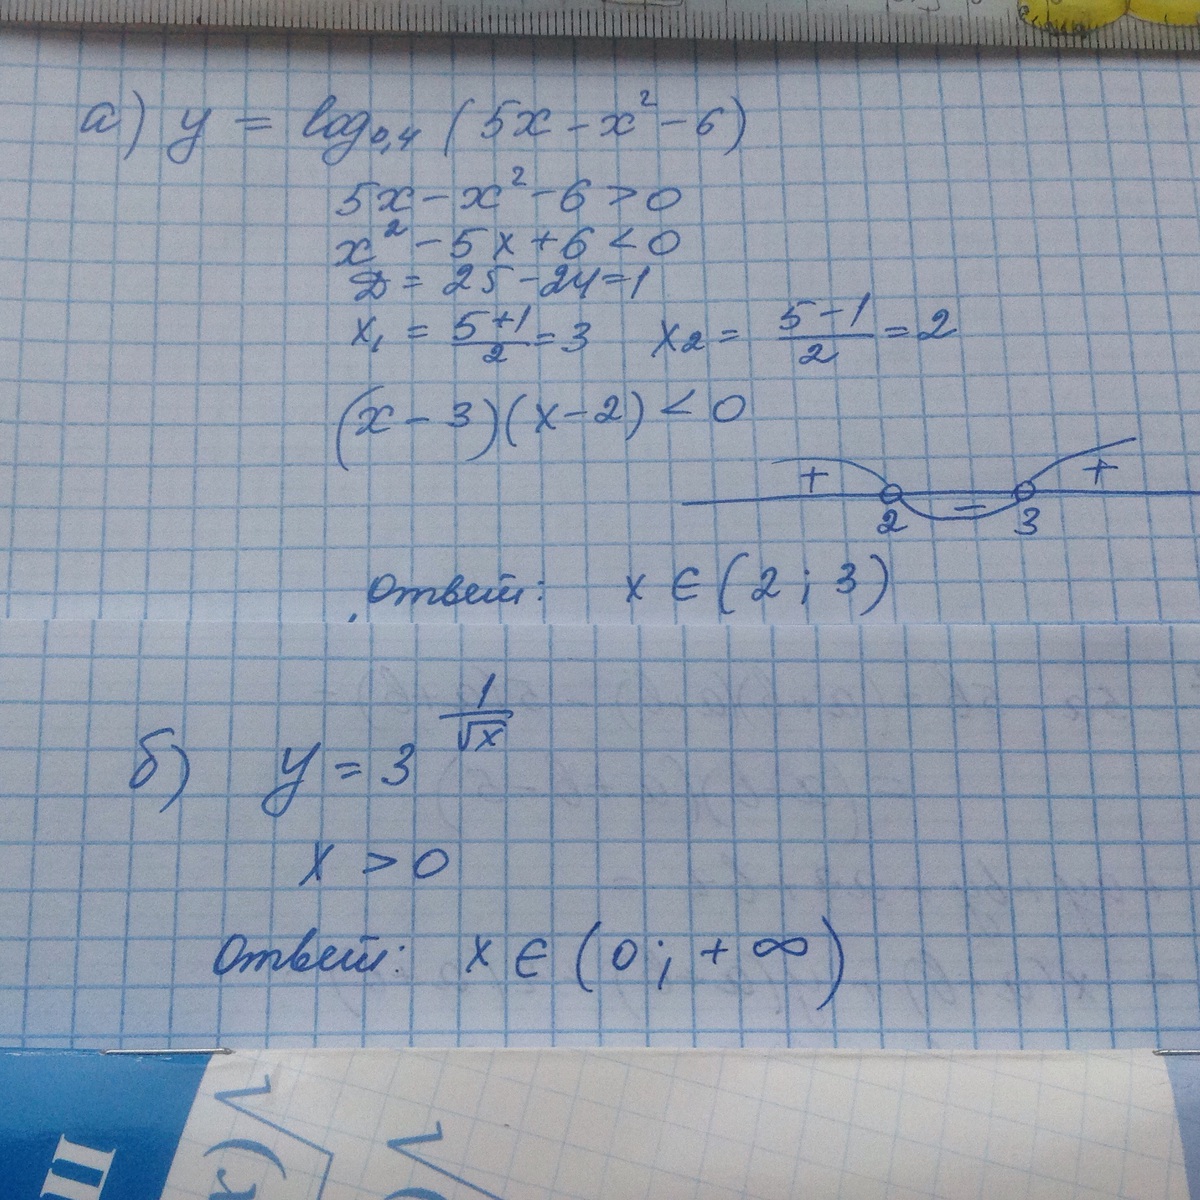 а) y = log₀,₄ (5x - x² - 6)
5x - x² - 6 > 0
x² - 5x + 6 < 0
D = 25 - 24 = 1
x₁ = (5+1)/2 = 3   x₂ = (5-1)/2 = 2
(x - 3)(x - 2) < 0
+ - +
2 3
Ответ: x ∈ (2; 3)
б) y = 3^(1/√x)
x > 0
Ответ: x ∈ (0; + ∞)